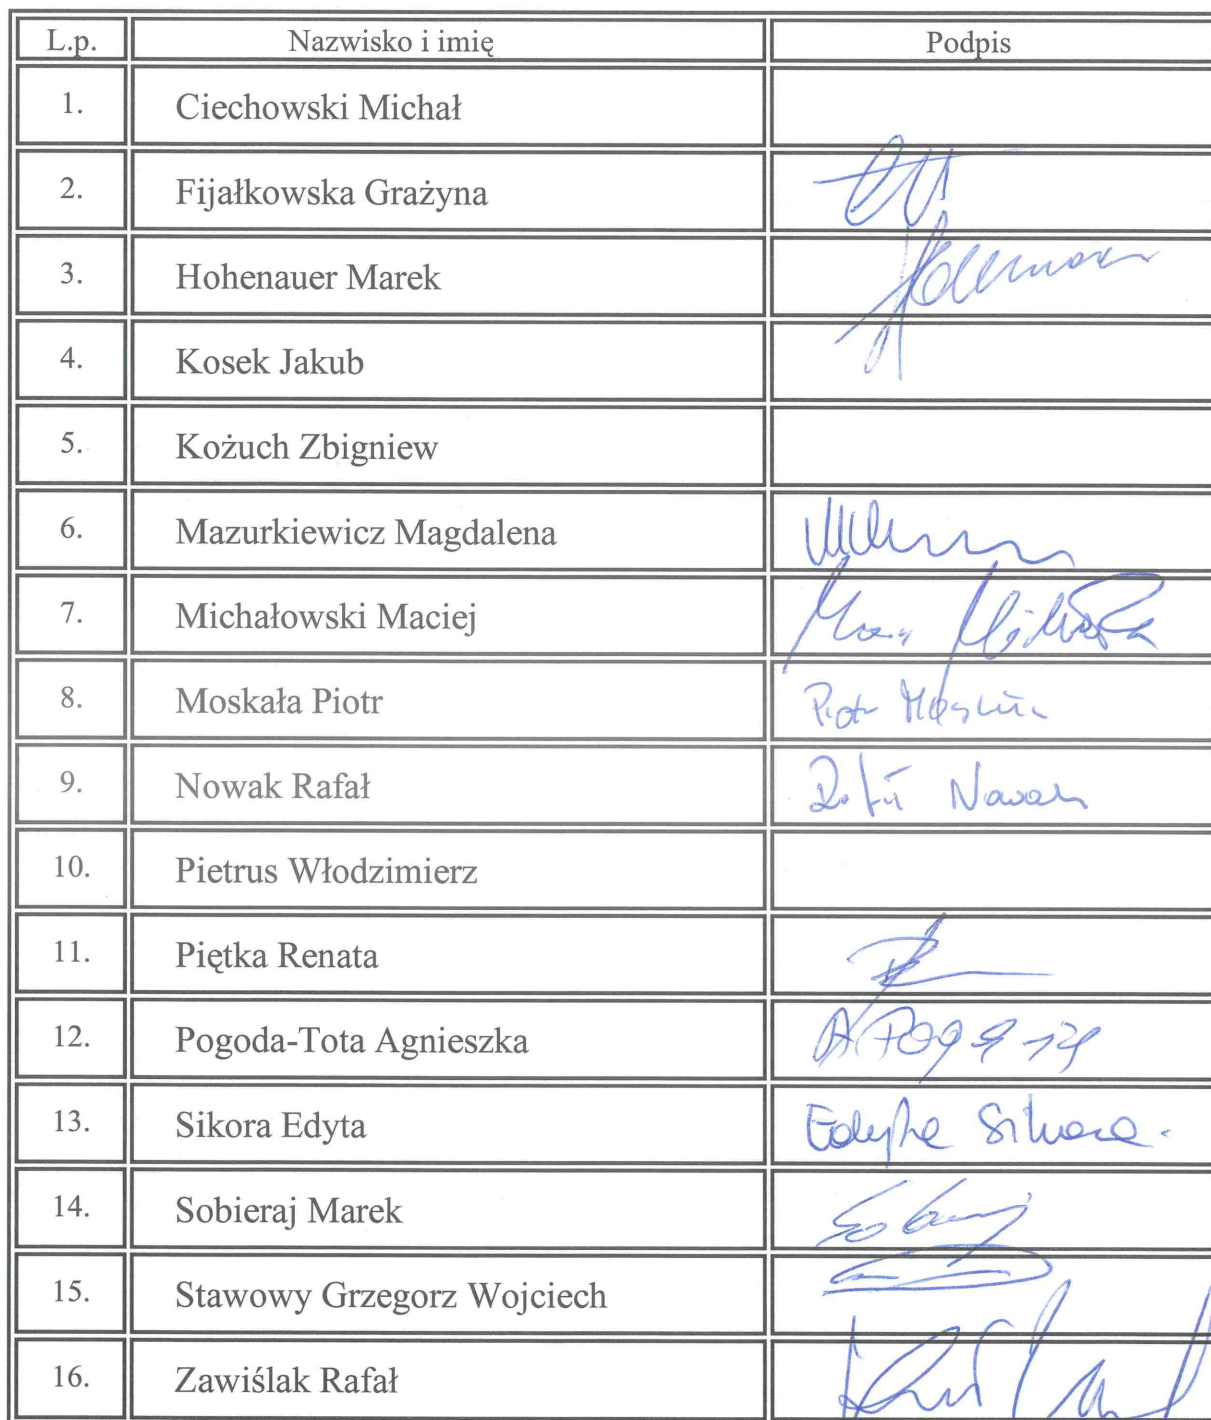 L.p. Nazwisko i imię Podpis
1. Ciechowski Michał
2. Fijałkowska Grażyna
3. Hohenauer Marek
4. Kosek Jakub
5. Kożuch Zbigniew
6. Mazurkiewicz Magdalena
7. Michałowski Maciej
8. Moskała Piotr Piotr
9. Nowak Rafał Rafał Nowak
10. Pietrus Włodzimierz
11. Piętka Renata
12. Pogoda-Tota Agnieszka
13. Sikora Edyta Edyta Sikora
14. Sobieraj Marek
15. Stawowy Grzegorz Wojciech
16. Zawiślak Rafał